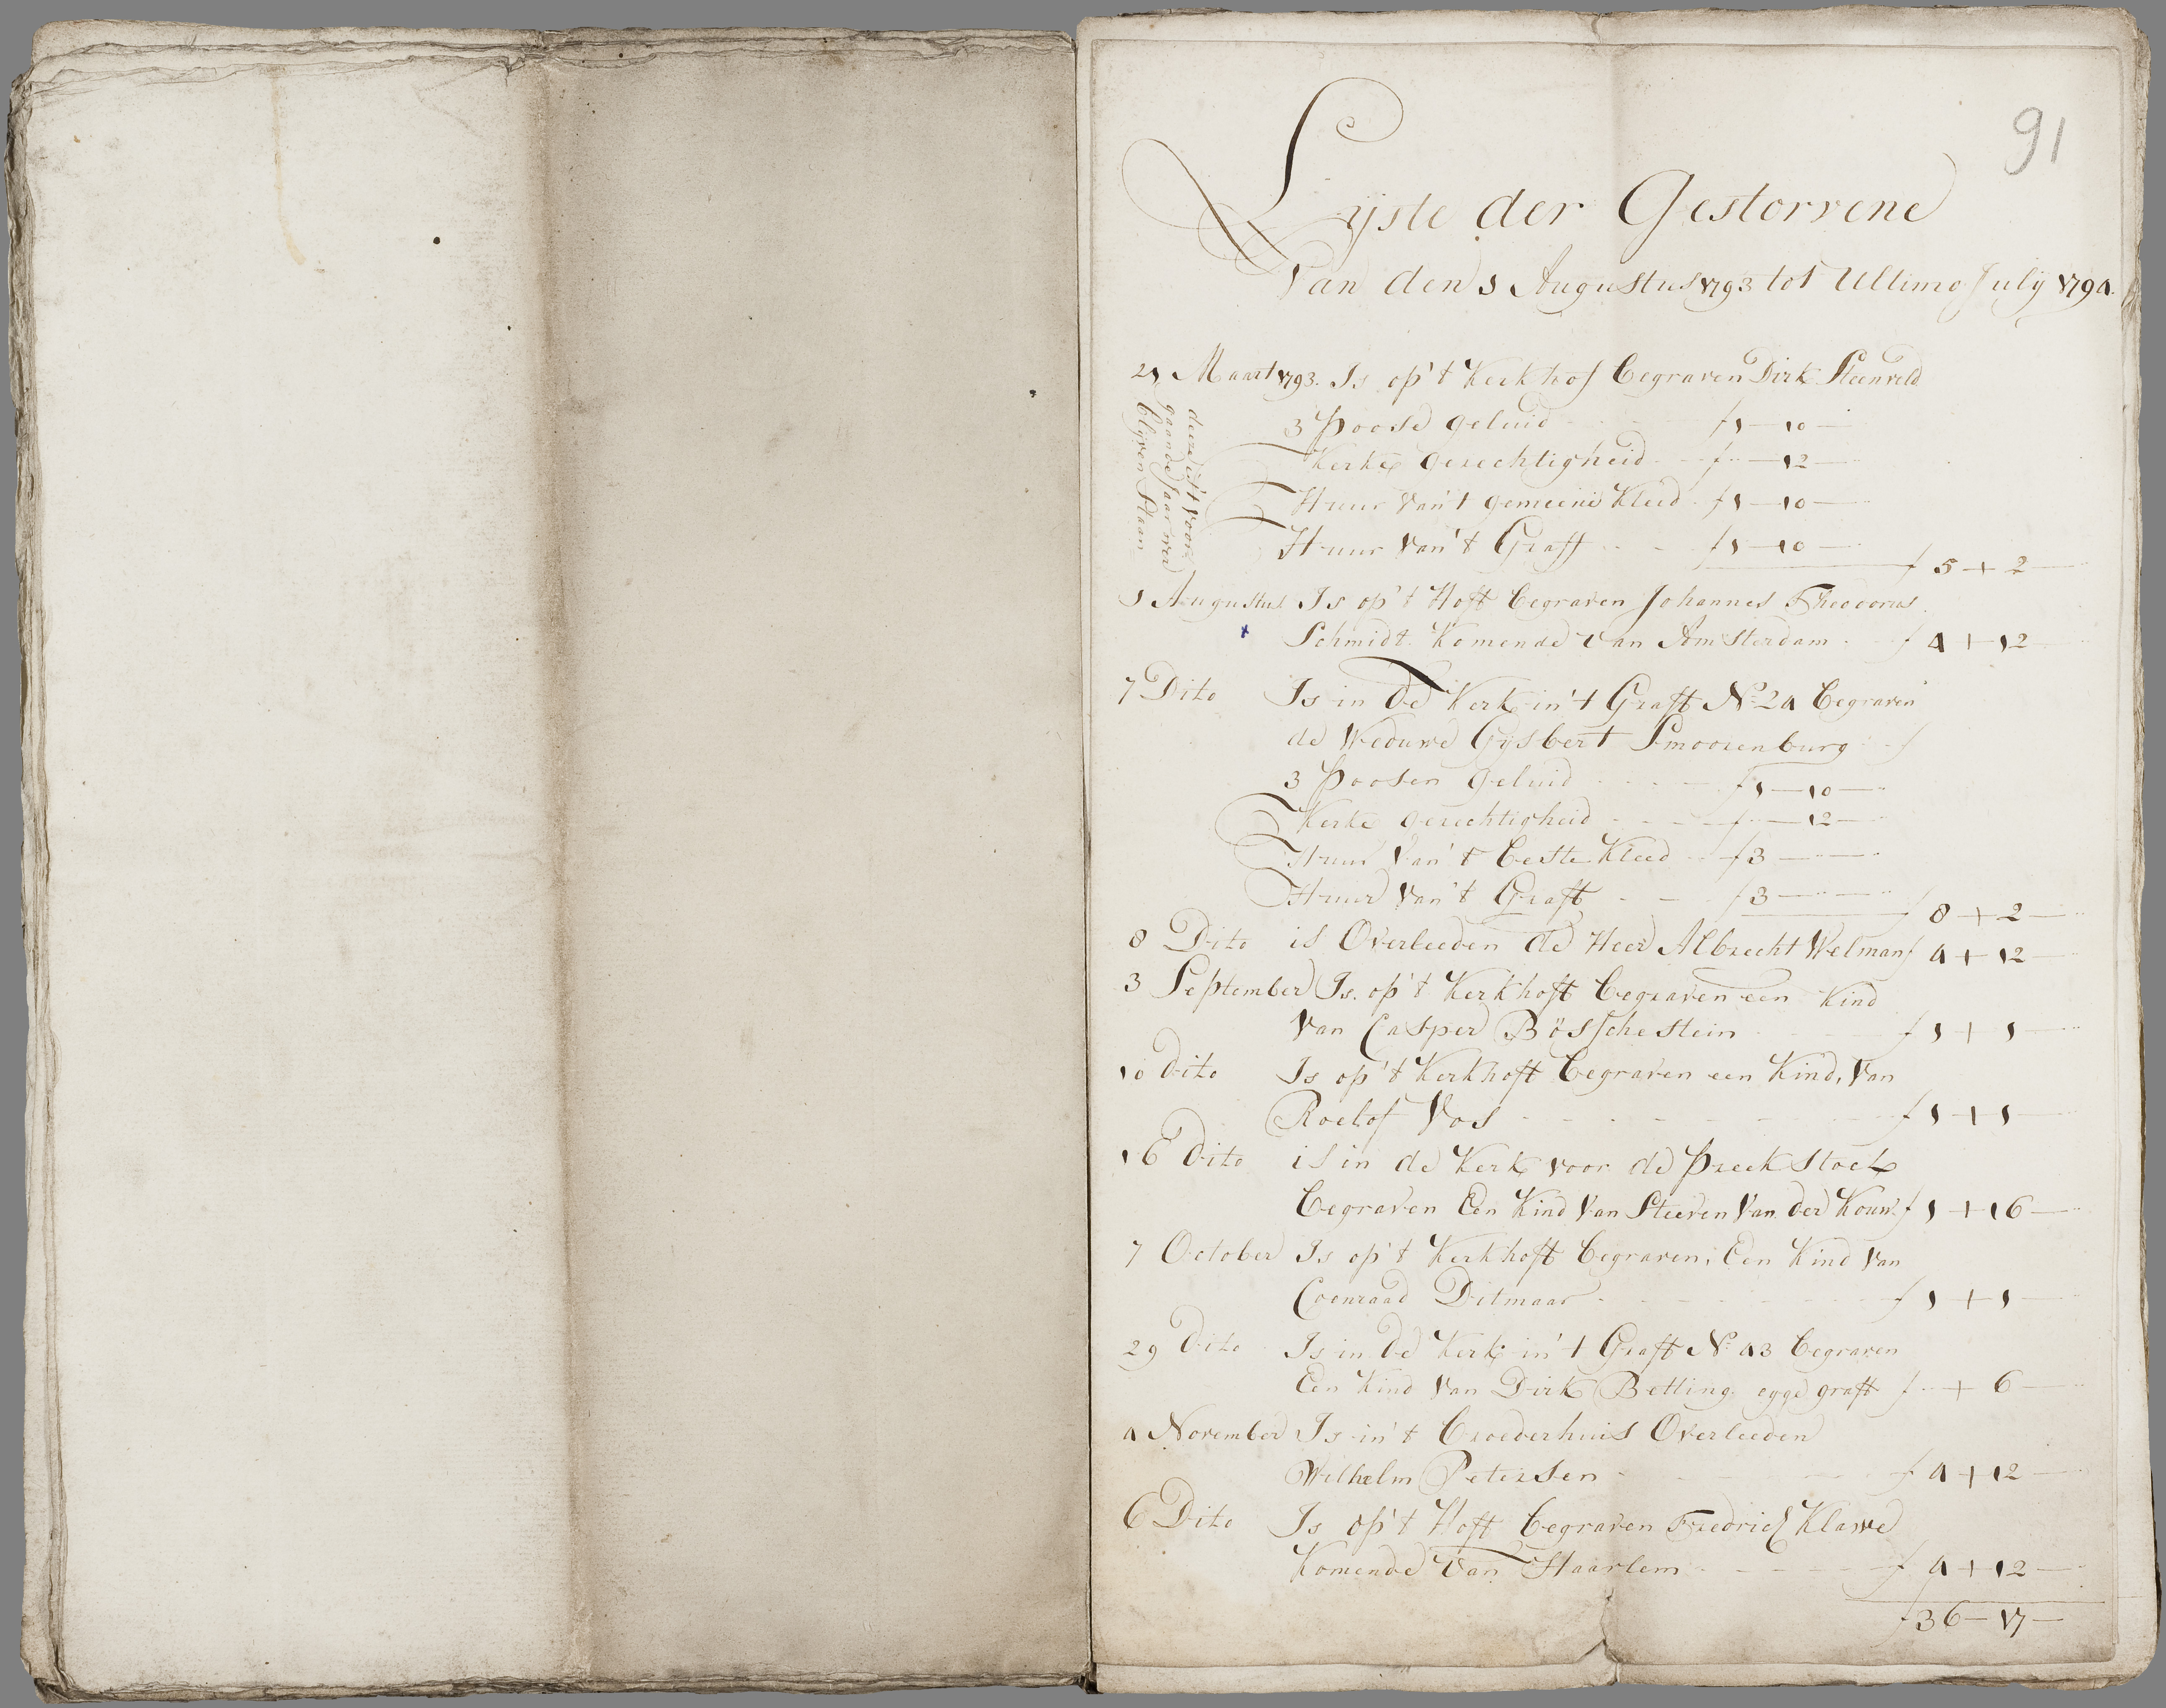 91
Lyste der Gestorvene
Van den 1 Augustus 1793 tot Ultimo July 1794.
21 Maart 1793. Is op't Kerkhof begraven Dirk Steenveld
deeze is't voor
gaande Jaar was
blyven Staan
3 Poose geluid f 1 — 10 —
Kerke gerechtigheid f .. — 12 —
Huur van't gemeene Kleed f 1 — 10 —
Huur van't Graff f 1 — 10 —
f 5 + 2 —
1 Augustus Is op't Hoft begraven Johannes Theodorus
Schmidt Komende van Amsterdam f 4 + 12
7 Dito Is in de Kerk in't Graft No 24 begraven
de Weduwe Gysbert Smoorenburg f
3 Poosen geluid f 1 — 10 —
Kerke gerechtigheid f .. — 12 —
Huur van't beste Kleed f 3 — ..
Huur van't Graft f 3 — ..
f 8 + 2 —
8 Dito is Overleeden de Heer Albrecht Welman f 4 + 12 —
3 September Is op't Kerkhoft begraven een Kind
van Casper Bösschestein f 1 + 1 —
10 dito Is op't Kerkhoft begraven een Kind, van
Roelof Vos f 1 + 1 —
16 dito is in de Kerk voor de Preek Stoel
begraven Een Kind van Steeven van der Kouw f 1 + 16 —
7 October Is op't Kerkhoft begraven, Een Kind van
Coenraad Ditmaar f 1 + 1 —
29 dito Is in de Kerk in't Graft No 43 begraven
Een Kind van Dirk Betting eyge graft f .. + 6 —
4 November Is in't Broederhuis Overleeden
Wilhelm Petersen f 4 + 12 —
6 Dito Is op't Hoft begraven Fredrich Klawe
Komende van Haarlem f 4 + 12 —
f 36 — 17 —